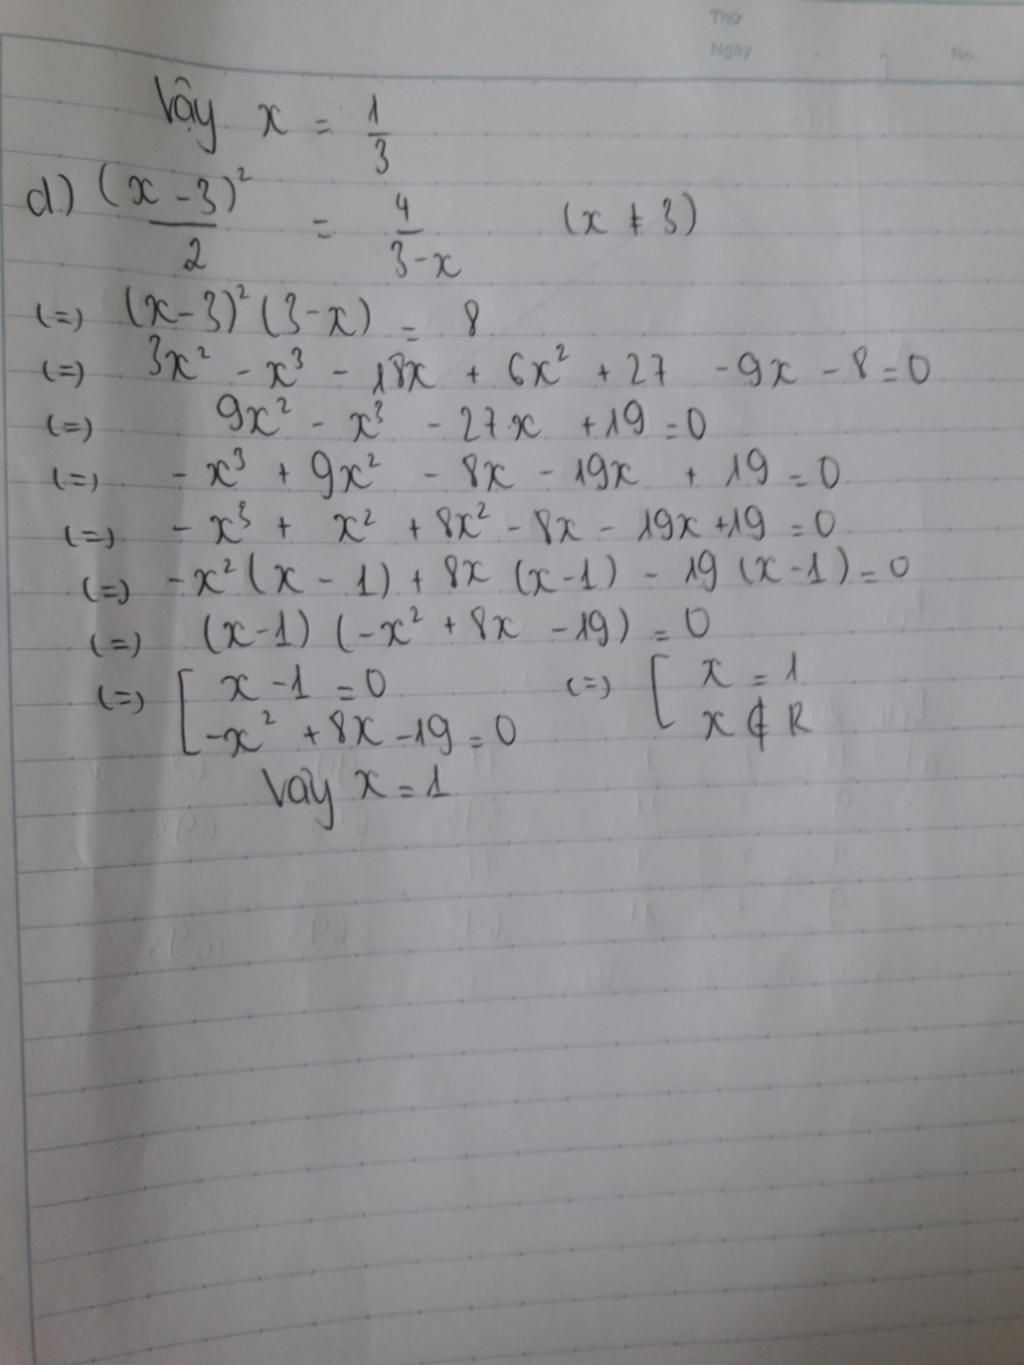 Thứ
Ngày
No.
Vậy x = 1/3
d) (x - 3)²/2 = 4/(3-x) (x ≠ 3)
(=) (x-3)² (3-x) = 8
(=) 3x² - x³ - 18x + 6x² + 27 - 9x - 8 = 0
(=) 9x² - x³ - 27x + 19 = 0
(=) - x³ + 9x² - 8x - 19x + 19 = 0
(=) - x³ + x² + 8x² - 8x - 19x + 19 = 0
(=) -x² (x - 1) + 8x (x-1) - 19 (x-1) = 0
(=) (x-1) (-x² + 8x - 19) = 0
(=) [ x - 1 = 0 (=) [ x = 1
-x² + 8x - 19 = 0 x ∉ R
Vậy x = 1